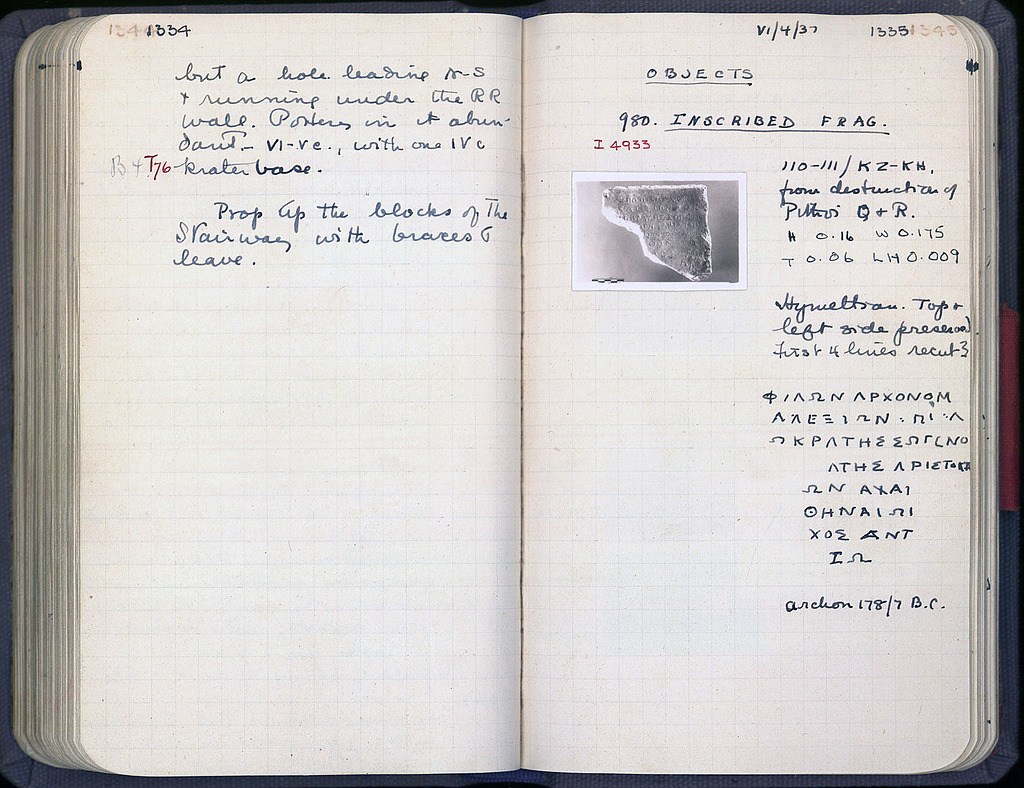 1344 1334
but a hole leading N-S
+ running under the RR
wall. Pottery in it abun-
dant – VI-V c., with one IV c
B 4 T76 krater base.
Prop up the blocks of The
Stairway with braces &
leave.
VI/4/37 1335 1345
OBJECTS
980. INSCRIBED FRAG.
I 4933
110-111/ΚΖ-ΚΗ,
from destruction of
Pithoi Q + R.
H 0.16 W 0.175
T 0.06 LH 0.009
Hymettian. Top +
left side preserved.
First 4 lines recut?
ΦΙΛΩΝΑΡΧΟΝΟΜ
ΑΛΕΞΙΩΝ
ΩΚΡΑΤΗΣΣΩΓΕΝΟ
ΑΤΗΣΑΡΙΣΤΟΚΡ
ΩΝ ΑΧΑΙ
ΘΗΝΑΙΩΙ
ΧΟΣ ΑΝΤ
ΙΩ
archon 178/7 B.C.